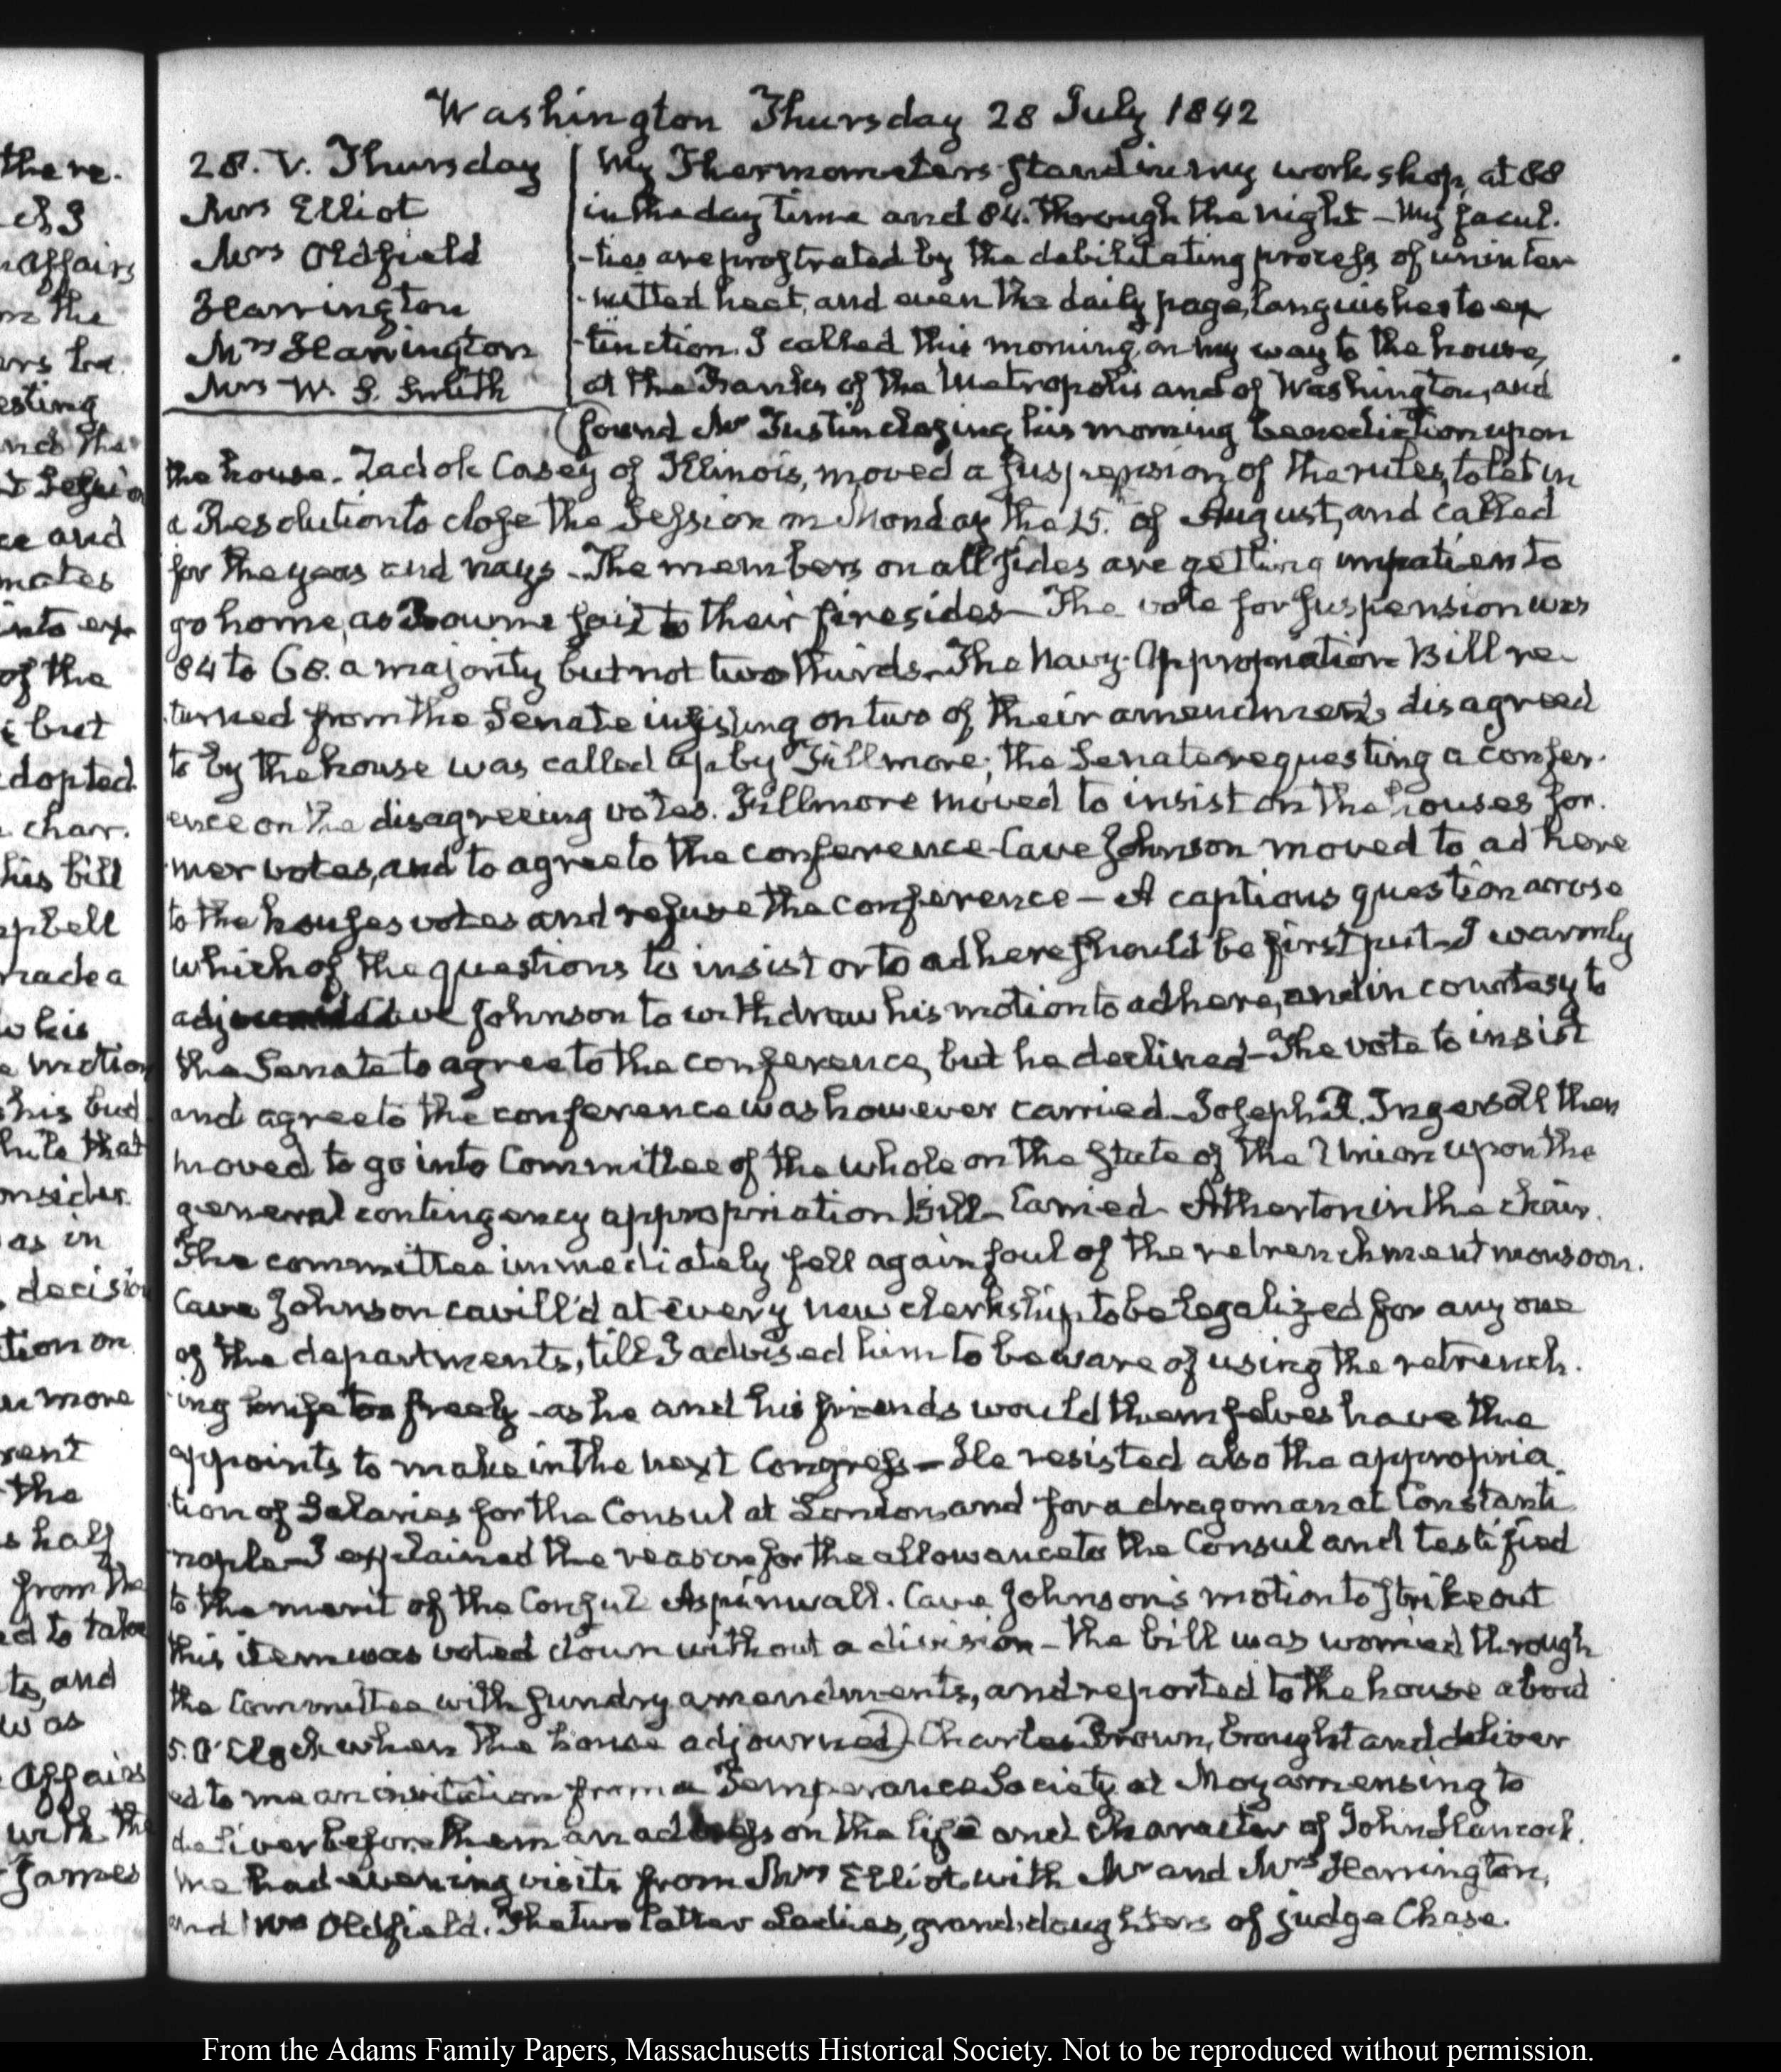 Washington Thursday 28 July 1842
28. V. Thursday
Mrs Elliot
Mrs Oldfield
Harrington
Mrs Harrington
Mrs W. S. Smith
My Thermometers stand in my work shop, at 88
in the day time and 84. through the night – My facul-
-ties are prostrated by the debilitating process of uninter
-mitted heat, and even the daily page, languishes to ex
-tinction. I called this morning, on my way to the house,
at the Banks of the Metropolis and of Washington, and
found Mr Tustin closing his morning benediction upon
the house. Zadok Casey of Illinois, moved a suspension of the rules, to let in
a Resolution to close the Session on Monday the 15. of August, and called
for the yeas and nays – The members on all sides are getting impatien to
go home, as Bowne said to their firesides – The vote for suspension was
84 to 68. a majority but not two thirds – The Navy Appropriation Bill re-
turned from the Senate insisting on two of their amendments disagreed
to by the house was called up by Fillmore; the Senate requesting a confer-
ence on the disagreeing votes. Fillmore moved to insist on the houses for-
mer votes, and to agree to the conference – Cave Johnson moved to adhere
to the houses votes and refuse the conference – A captious question arose
which of the questions to insist or to adhere should be first put – I warmly
Cave Johnson to withdraw his motion to adhere, and in courtesy to
the Senate to agree to the conference, but he declined – The vote to insist
and agree to the conference was however carried – Joseph R. Ingersoll then
moved to go into Committee of the whole on the State of the Union upon the
general contingency appropriation bill – Carried – Atherton in the chair.
The committee immediately fell again foul of the retrenchment monsoon.
Cave Johnson cavill'd at every new clerkship to be legalized for any one
of the departments, till I advised him to beware of using the retrench-
ing knife too freely – as he and his friends would themselves have the
appoints to make in the next Congress – He resisted also the appropria-
tion of Salaries for the Consul at London, and for a dragoman at Constanti
nople – I explained the reason for the allowance to the Consul and testified
to the merit of the Consul Aspinwall. Cave Johnson's motion to strike out
this item was voted down without a division – the bill was worried through
the Committee with sundry amendments, and reported to the house about
5. O'Clock when the house adjourned) Charles Brown, brought and deliver
ed to me an invitation from a Temperance Society at Moyamensing to
deliver before them an address on the life and character of John Hancock.
We had evening visits from Mrs Elliot with Mr and Mrs Harrington,
and Mrs Oldfield. The two latter Ladies, grand daughters of judge Chase.
From the Adams Family Papers, Massachusetts Historical Society. Not to be reproduced without permission.